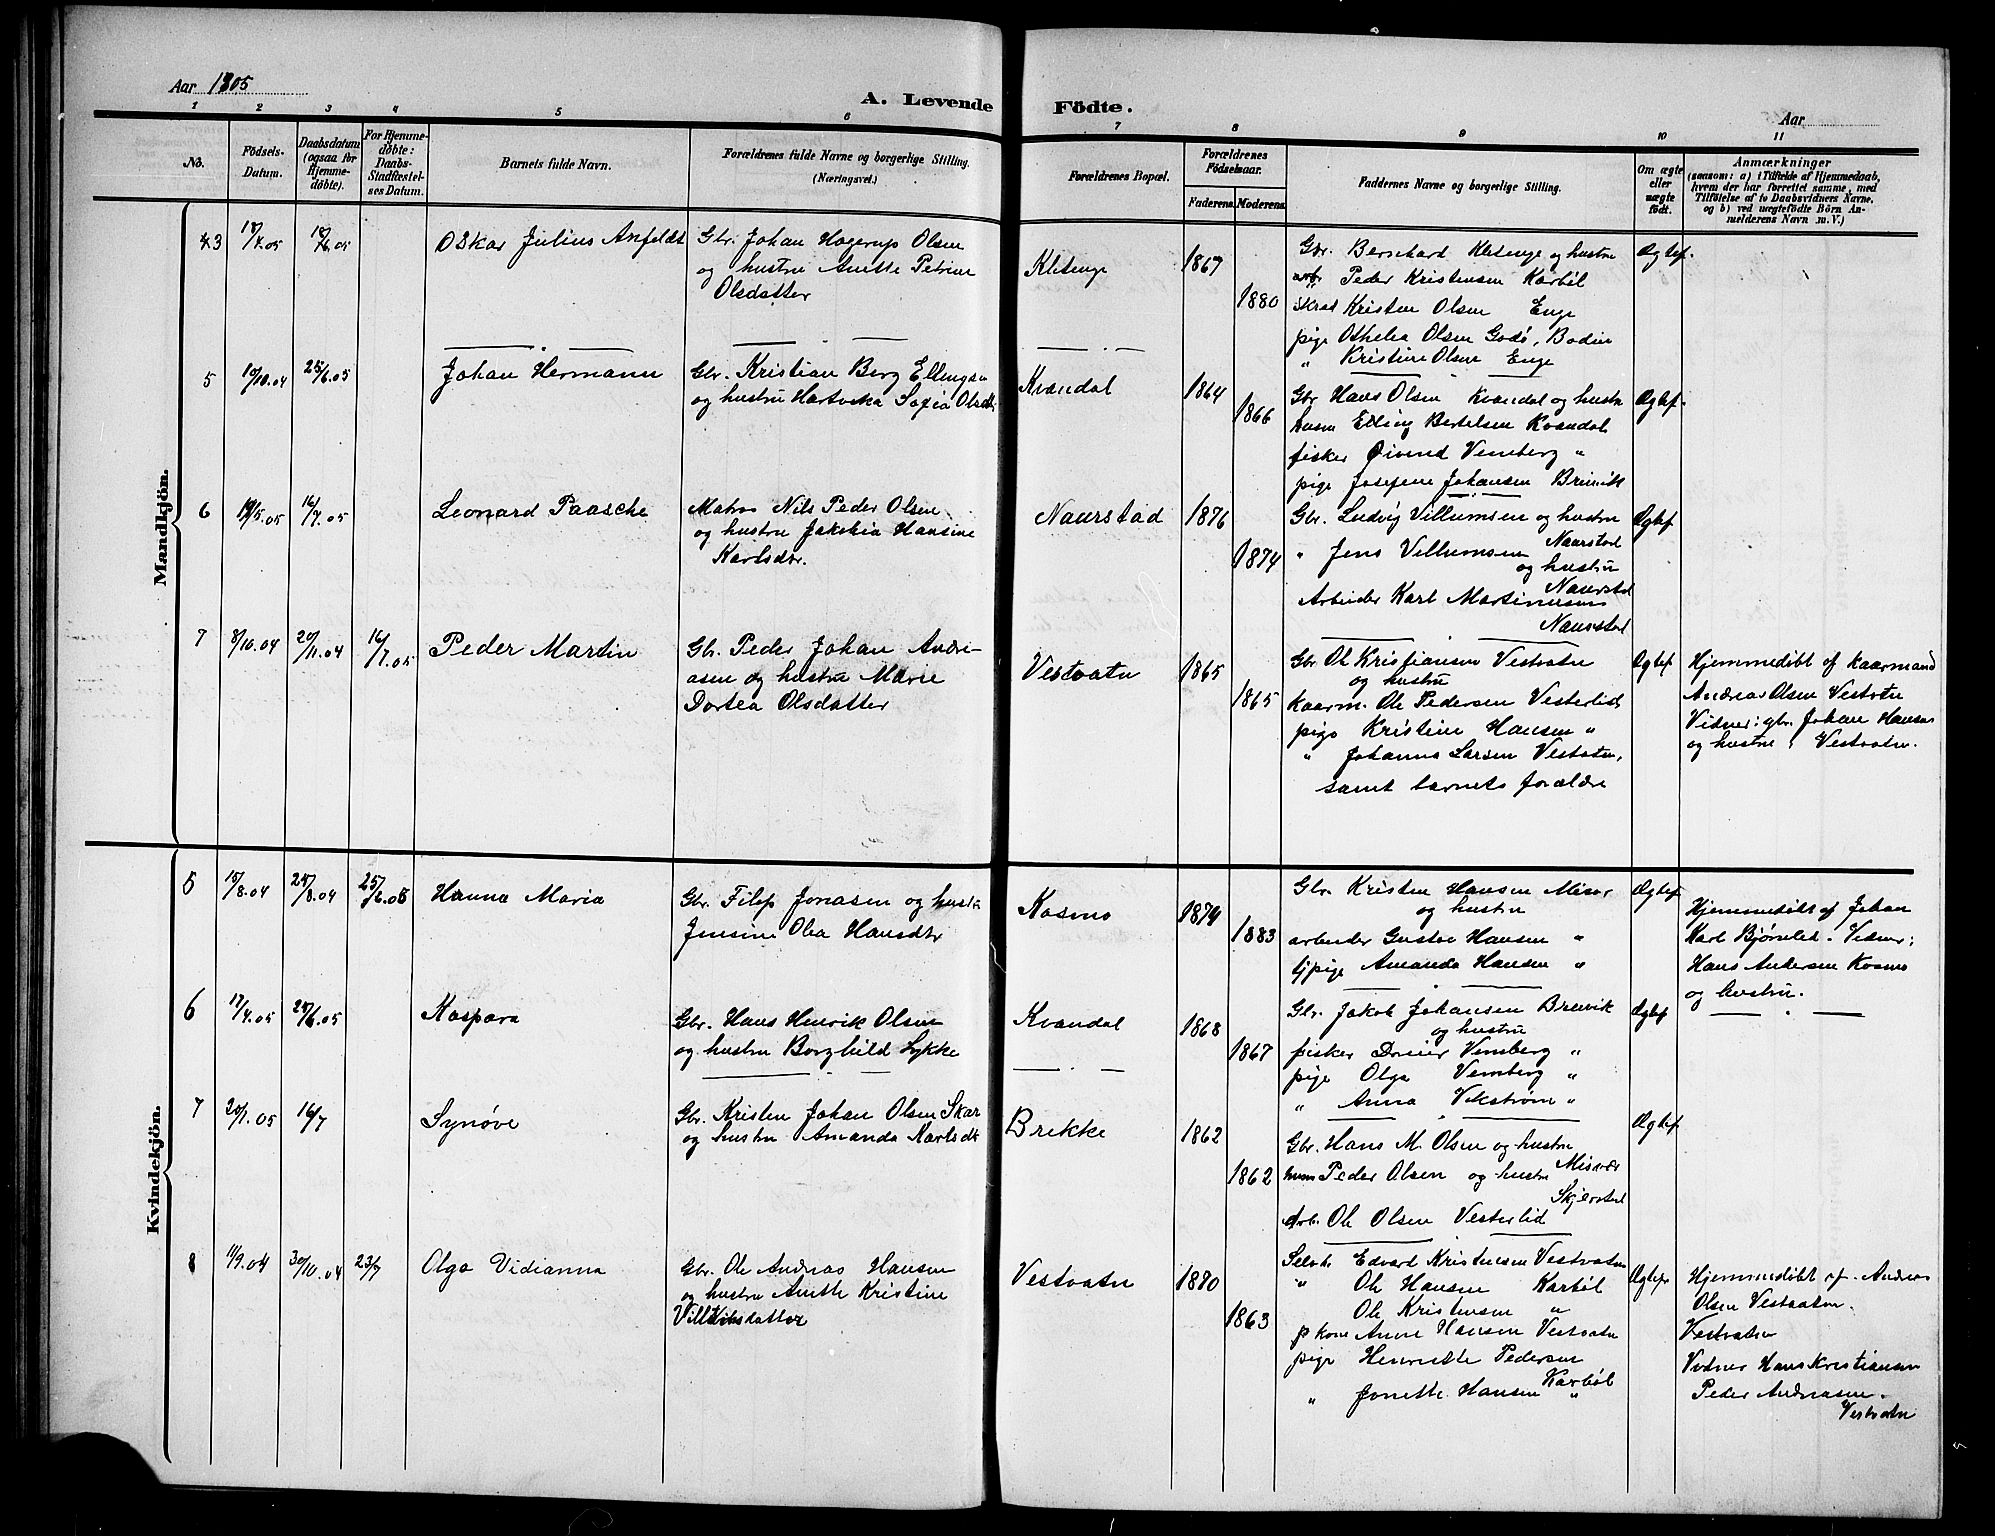 Aar 1905
A. Levende Födte.
Aar
1 2 3 4 5 6 7 8 9 10 11
No.
Födsels-Datum.
Daabsdatum (ogsaa för Hjemme-döbte).
For Hjemme-döbte: Daabs-Stadfæstel-ses Datum.
Barnets fulde Navn.
Forældrenes fulde Navne og borgerlige Stilling. (Næringsvei.)
Forældrenes Bopæl.
Forældrenes Födselsaar.
Faderens. Moderens.
Faddernes Navne og borgerlige Stilling.
Om ægte eller uægte födt.
Anmærkninger
(saasom: a) i Tilfælde af Hjemmedaab, hvem der har forrettet samme, med Tilföielse af to Daabsvidners Navne, og b) ved uægtefödte Börn An-melderens Navn m. V.)
Mandkjön.
Oskar Julius Anfeldt
Gbr. Johan Hagerup Olsen
og hustru Anette Petrine
Olsdatter
Kletenge
1867
1880
Gbr. Bernhard Kletenge og hustru
arb. Peder Kristensen Karbøl
Kristen Olsen Enge
pige Othelia Olsen Godø, Bodin
" Kristine Olsen Enge
Ægtef.
5
10/10.04
25/6.05
Johan Hermann
Gbr. Kristian Berg Ellingsen
og hustru Hartvika Sofia Olsdtr
Kvandal
1864
1866
Gbr Hans Olsen Kvandal og hustru
husm Elling Bertelsen Kvandal
fisker Øivind Vemberg "
pige Josefine Johansen Breivik
Ægtef.
6
16/7.05
Leonard Paasche
Matros Nils Peder Olsen
og hustru Jakobia Hansine
Karlsdtr.
Naurstad
1876
1874
Gbr. Ludvig Villumsen og hustru
Naurstad
" Jens Villumsen og hustru
Naurstad
Arbeider Karl Martinussen
Naurstad
Ægtef
7
8/10.04
20/11.04
16/7.05
Peder Martin
Gbr. Peder Johan Andre-
asen og hustru Marie
Dortea Olsdatter
Vestvatn
1865
1865
Gbr Ol Kristiansen Vestvatn
og hustru
kaarm. Ole Pedersen Vesterlid
pige Kristine Hansen "
" Johanna Larsen Vestvatn,
samt barnets forældre
Ægtef
Hjemmedøbt af kaarmand
Andreas Olsen Vestvatn
Vidner: gbr. Johan Hansen
og hustru, Vestvatn.
Kvindekjön.
5
15/8.04
28/8.04
25/6.05
Hanna Maria
Gbr. Filip Jonasen og hustru
Jensine Olea Hansdtr
Kosmo
1874
1883
Gbr. Kristen Hansen Misvær
og hustru
arbeider Gustav Hansen "
tjpige Amanda Hansen "
Ægtef
Hjemmedøbt af Johan
Karl Bjørnlid. Vidner:
Hans Andersen Kosmo
og hustru.
6
17/4.05
Kaspara
Gbr. Hans Henrik Olsen
og hustru Borghild Lykke
Kvandal
1868
1867
Gbr. Jakob Johansen Breivik
og hustru
fisker Dreier Vemberg "
pige Olga Vemberg "
" Anna Vikstrøm "
Ægtef
7
20/1.05
16/7
Synøve
Gbr. Kristen Johan Olsen Skar
og hustru Amanda Karlsdtr
Brekke
1862
1862
Gbr. Hans M. Olsen og hustru
Misvær
husm Peder Olsen og hustru
Skjerstad
Arb. Ole Olsen Vesterlid
Ægtef
8
11/9.04
30/10.04
23/7
Olga Vidianna
Gbr. Ole Andreas Hansen
og hustru Anette Kristine
Villumsdatter
Vestvatn
1880
1863
Selvst. Edvard Kristensen Vestvatn
" Ole Hansen Karbøl
Ole Kristensen "
Anne Hansen Vestvatn
pige Henriette Pedersen
Karbøl
" Jonette Hansen "
Ægtef
Hjemmedøbt af Andreas
Olsen Vestvatn.
Vestvatn
Vidner Hans Kristiansen
Peder Andreasen.
Vestvatn